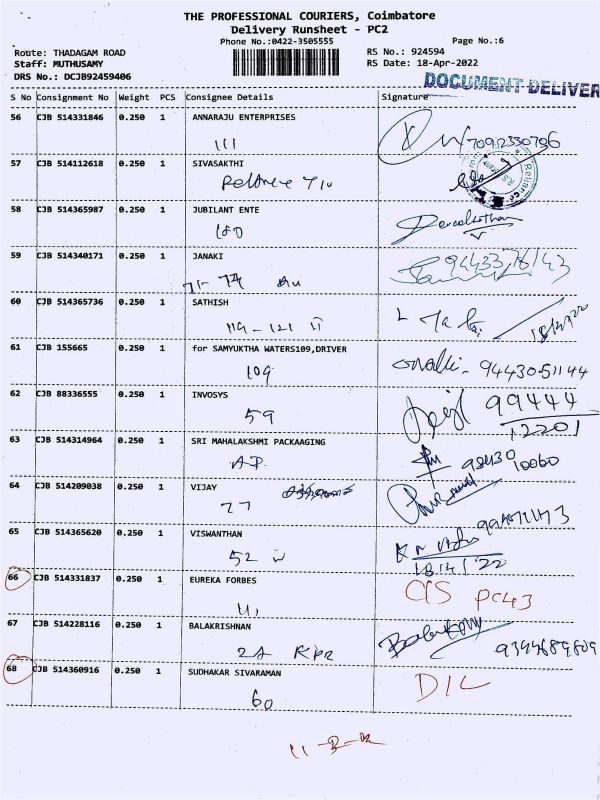 THE PROFESSIONAL COURIERS, Coimbatore
Delivery Runsheet - PC2
Phone No.:0422-3505555 Page No.:6
Route: THADAGAM ROAD RS No.: 924594
Staff: MUTHUSAMY RS Date: 18-Apr-2022
DRS No.: DCJB92459406
DOCUMENT DELIVER
S No Consignment No Weight PCS Consignee Details Signature
56 CJB 514331846 0.250 1 ANNARAJU ENTERPRISES
111
57 CJB 514112618 0.250 1 SIVASAKTHI
Reliance
58 CJB 514365987 0.250 1 JUBILANT ENTE
180
59 CJB 514340171 0.250 1 JANAKI
71-74
60 CJB 514365736 0.250 1 SATHISH
119-121
18/4/22
61 CJB 155665 0.250 1 for SAMYUKTHA WATERS109,DRIVER
109 9443051144
62 CJB 88336555 0.250 1 INVOSYS
59 99444
12201
63 CJB 514314964 0.250 1 SRI MAHALAKSHMI PACKAAGING
AP 98430
10060
64 CJB 514209038 0.250 1 VIJAY
77
65 CJB 514365620 0.250 1 VISWANTHAN
52
18/4/22
66 CJB 514331837 0.250 1 EUREKA FORBES
PC43
67 CJB 514228116 0.250 1 BALAKRISHNAN
2A KPR 9344689809
68 CJB 514360916 0.250 1 SUDHAKAR SIVARAMAN
60 D/L